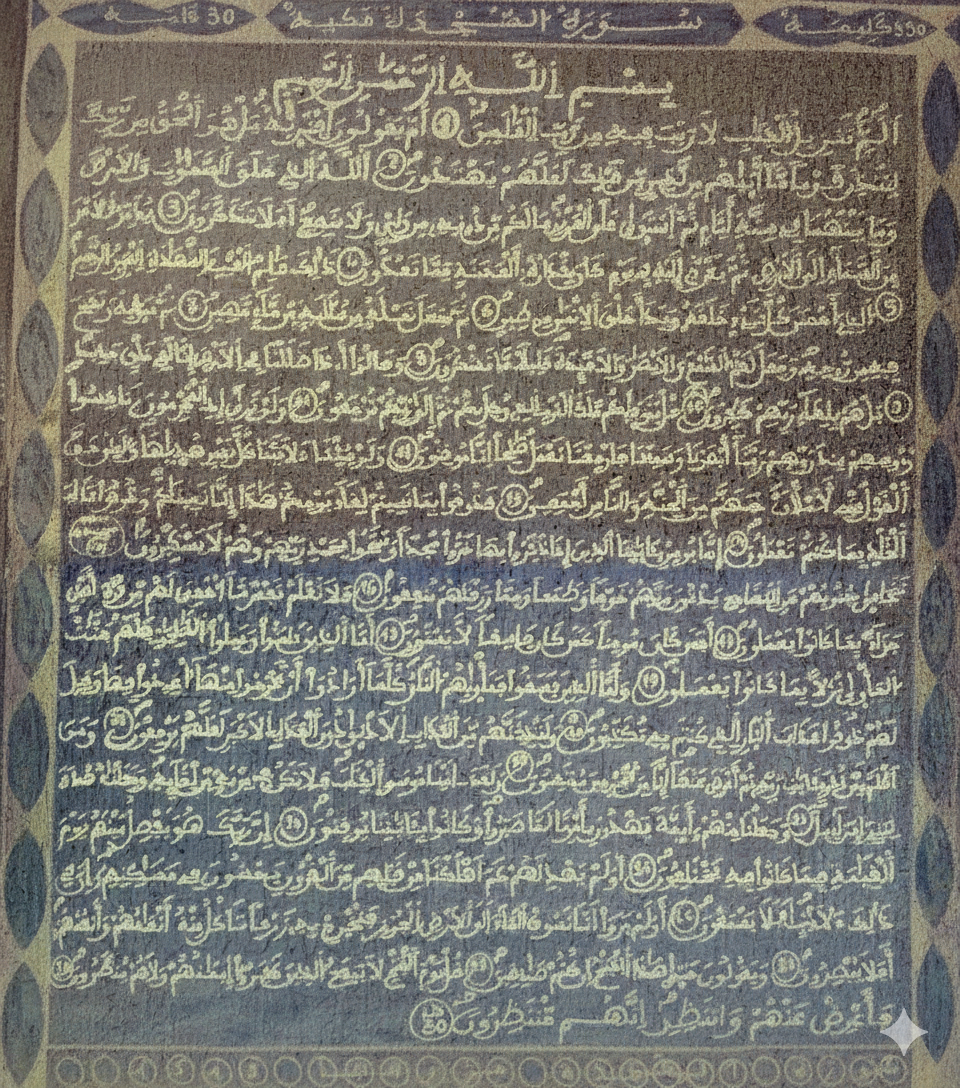 30 سورة السجدة مكية 330
بسم الله الرحمن الرحيم
ألم تنزيل الكتب لا ريب فيه من رب العلمين 1 أم يقولون افتريه بل هو الحق من ربك
لتنذر قوما ما أتيهم من نذير من قبلك لعلهم يهتدون 2 الله الذي خلق السموت والارض
وما بينهما في ستة أيام ثم استوى على العرش ما لكم من دونه من ولي ولا شفيع افلا تتذكرون 3 يدبر الامر
من السماء الى الارض ثم يعرج إليه في يوم كان مقداره ألف سنة مما تعدون 4 ذلك علم الغيب والشهدة العزيز الرحيم
5 الذي أحسن كل شيء خلقه وبدأ خلق الانسن من طين 6 ثم جعل نسله من سللة من ماء مهين 7 ثم سويه ونفخ
فيه من روحه وجعل لكم السمع والابصر والافدة قليلا ما تشكرون 8 وقالوا أ.ذا ضللنا في الارض إنا لفي خلق جديد
9 بل هم بلقاء ربهم كفرون 10 قل يتوفيكم ملك الموت الذي وكل بكم ثم إلى ربكم ترجعون 11 ولو ترى إذ المجرمون ناكسوا
رءوسهم عند ربهم ربنا أبصرنا وسمعنا فارجعنا نعمل صلحا انا موقنون 12 ولو شينا ءلاتينا كل نفس هديها ولكن حق
القول مني لأملأن جهنم من الجنة والناس أجمعين 13 فذوقوا بما نسيتم لقاء يومكم هذا إنا نسينكم وذوقوا عذاب
الخلد بما كنتم تعملون 14 إنما يومن بايتنا الذين إذا ذكروا بها خروا سجدا وسبحوا بحمد ربهم وهم لا يستكبرون
تتجافى جنوبهم عن المضاجع يدعون ربهم خوفا وطمعا ومما رزقنهم ينفقون 16 فلا تعلم نفس ما أخفي لهم من قرة أعين
جزاء بما كانوا يعملون 17 أفمن كان مومنا كمن كان فاسقا لا يستوون 18 أما الذين ءامنوا وعملوا الصلحت فلهم جنت
المأوى نزلا بما كانوا يعملون 19 وأما الذين فسقوا فمأويهم النار كلما أرادوا أن يخرجوا منها أعيدوا فيها وقيل
لهم ذوقوا عذاب النار الذي كنتم به تكذبون 20 ولنذيقنهم من العذاب الادنى دون العذاب الاكبر لعلهم يرجعون 21 ومن
أظلم ممن ذكر بايت ربه ثم أعرض عنها إنا من المجرمين منتقمون 22 ولقد اتينا موسى الكتب فلا تكن في مرية من لقايه وجعلنه هدى
لبني إسراءيل 23 وجعلنا منهم أيمة يهدون بأمرنا لما صبروا وكانوا بايتنا يوقنون 24 إن ربك هو يفصل بينهم يوم
القيمة فيما كانوا فيه يختلفون 25 أولم يهد لهم كم أهلكنا من قبلهم من القرون يمشون في مسكنهم إن في
ذلك ءلايت افلا يسمعون 26 أولم يروا أنا نسوق الماء الى الارض الجرز فنخرج به زرعا تاكل منه أنعمهم وأنفسهم
أفلا يبصرون 27 ويقولون متى هذا الفتح إن كنتم صدقين 28 قل يوم الفتح لا ينفع الذين كفروا إيمنهم ولا هم ينظرون 29
فأعرض عنهم وانتظر انهم منتظرون 30